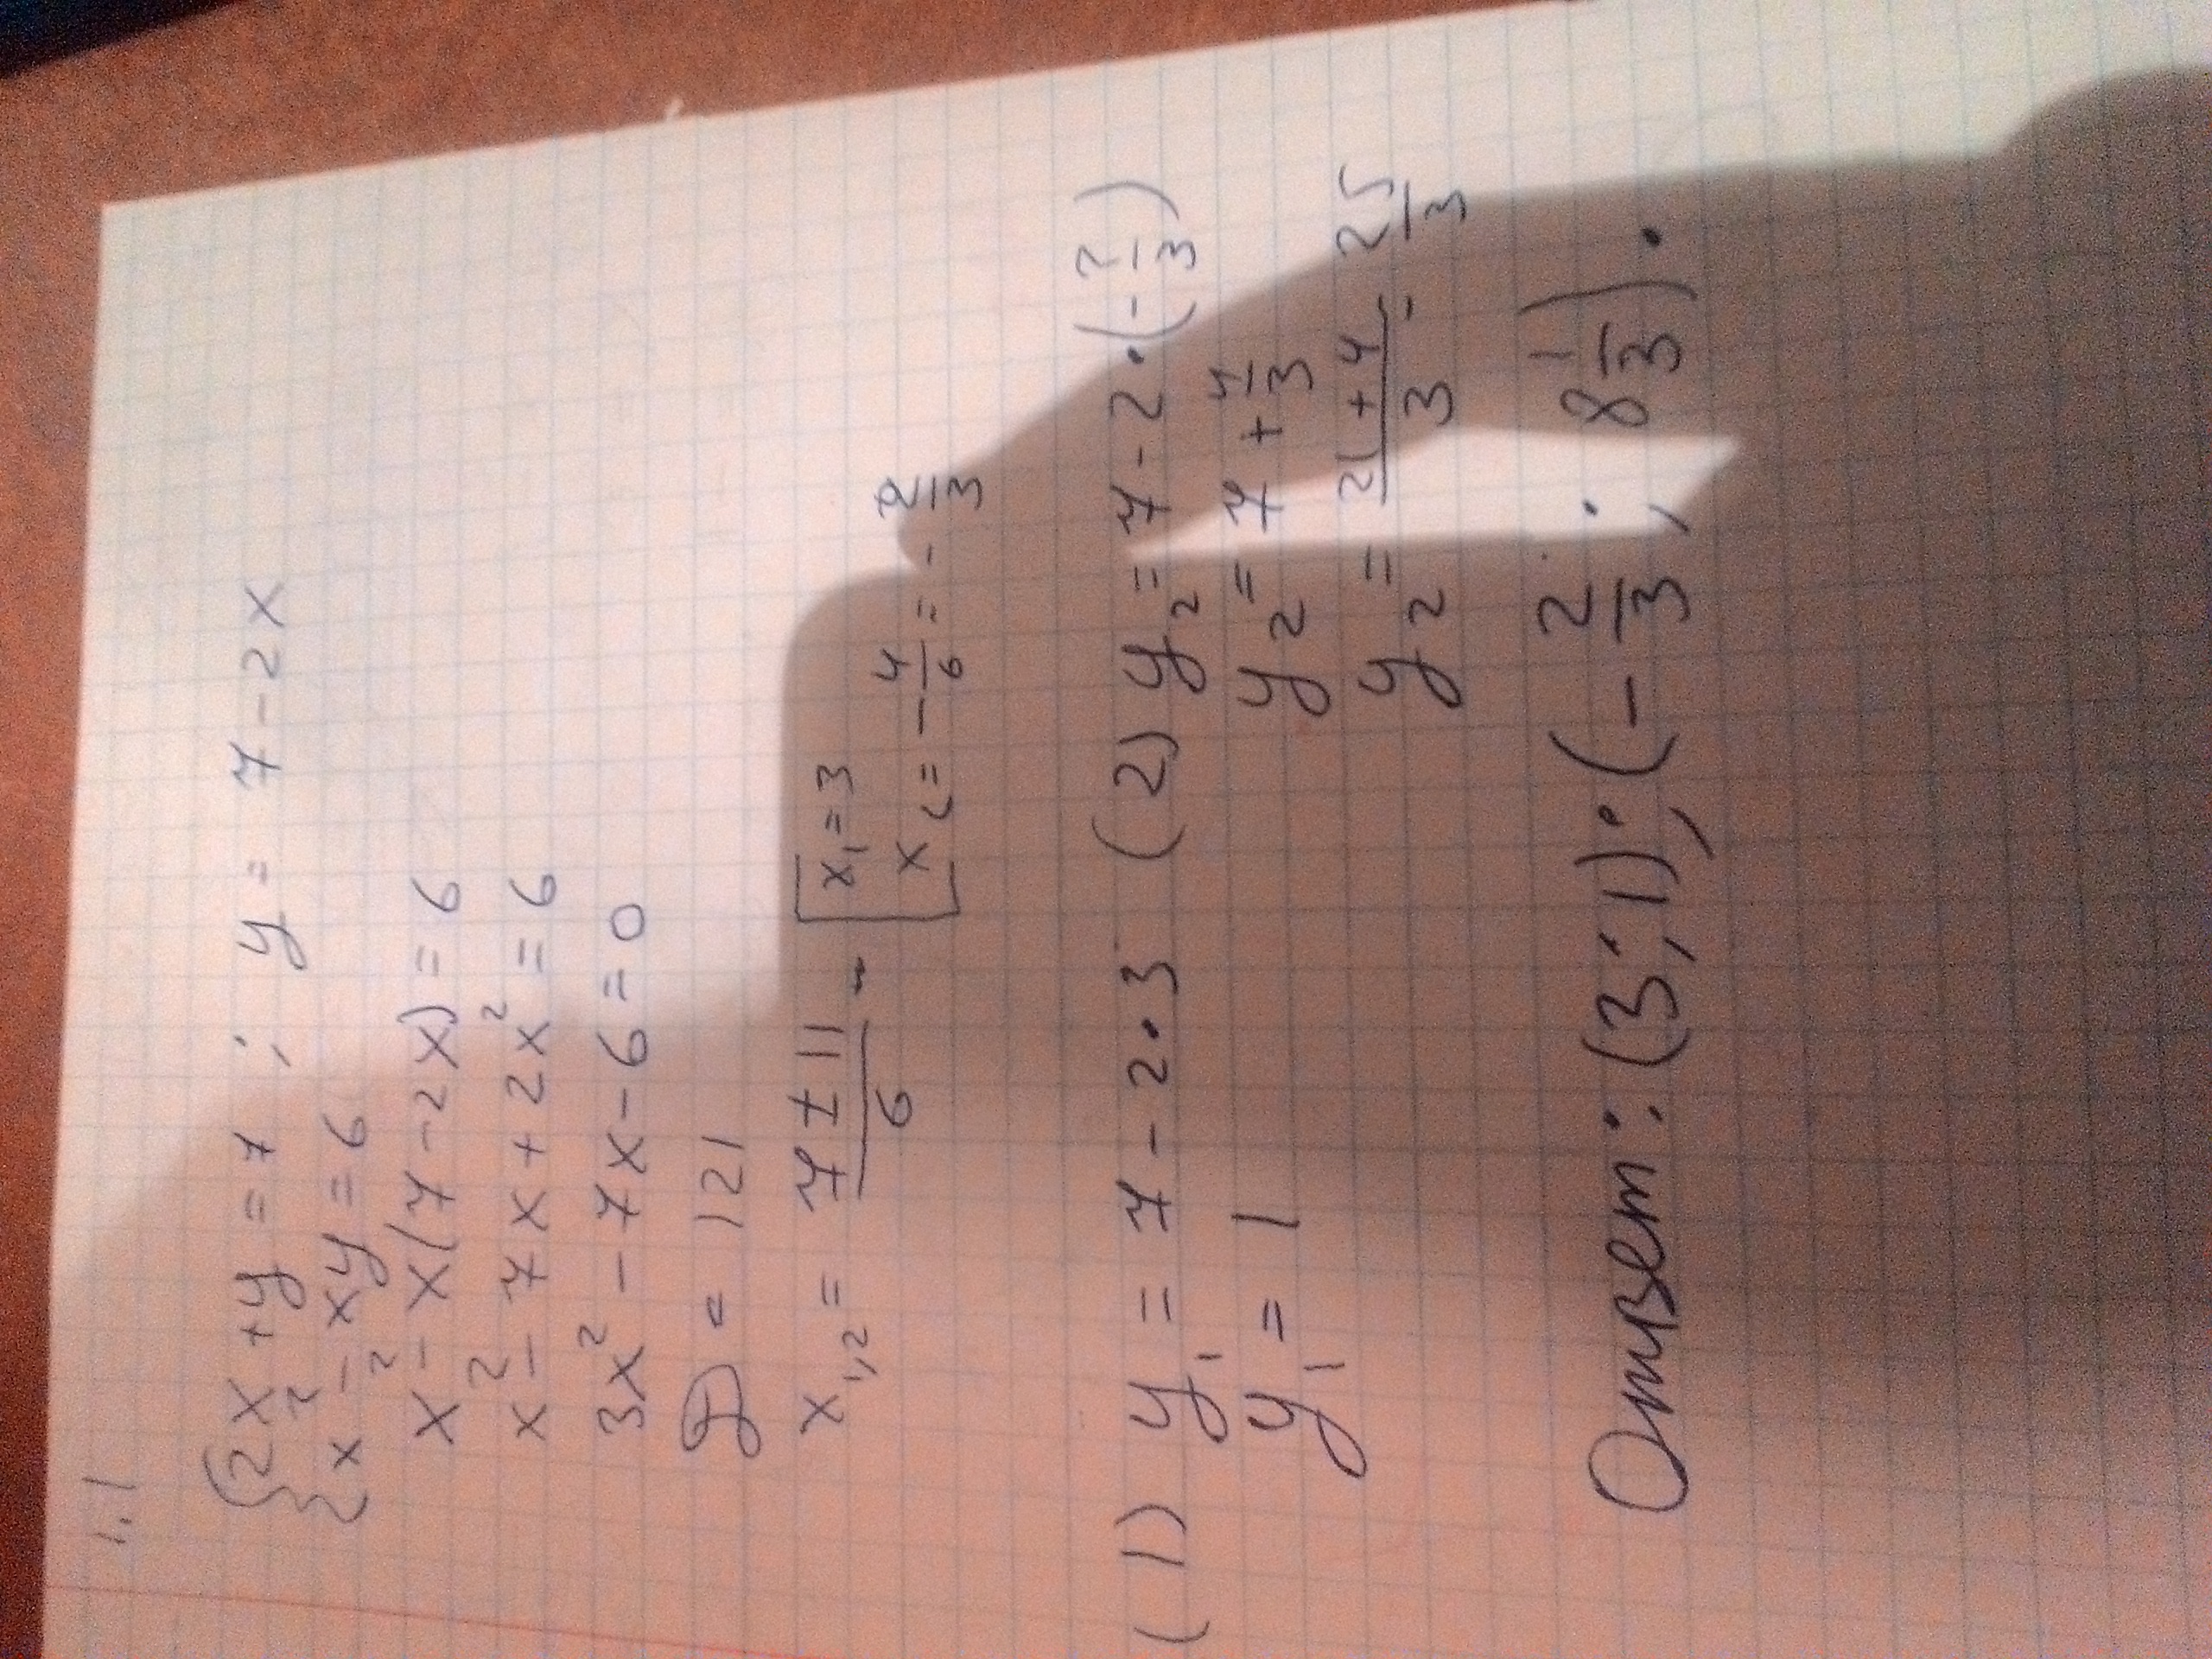 1.1
{2x + y = 7 ; y = 7 - 2x
{x² - xy = 6
x² - x(7 - 2x) = 6
x² - 7x + 2x² = 6
3x² - 7x - 6 = 0
D = 121
x₁,₂ = (7 ± 11)/6 - [x₁ = 3
x₂ = -4/6 = -2/3
(1) y₁ = 7 - 2•3 (2) y₂ = 7 - 2•(-2/3)
y₁ = 1 y₂ = 7 + 4/3
y₂ = (21 + 4)/3 = 25/3
Ответ: (3; 1); (-2/3; 8 1/3).